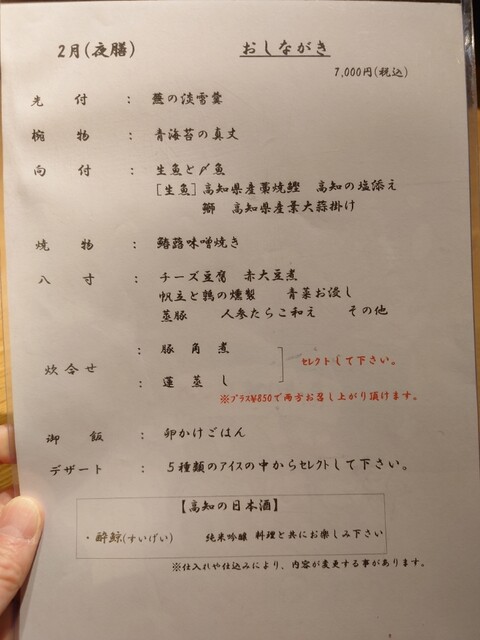 2月(夜膳)　おしながき
7,000円(税込)
先　付　：　蕪の淡雪羹
椀　物　：　青海苔の真丈
向　付　：　生魚と〆魚
[生魚] 高知県産藁焼鰹　高知の塩添え
鰤　高知県産葉大蒜掛け
焼　物　：　鰆蕗味噌焼き
八　寸　：　チーズ豆腐　赤大豆煮
帆立と鶉の燻製　青菜お浸し
蒸豚　人参たらこ和え　その他
炊合せ　：　豚　角　煮
：　蓮　蒸　し
セレクトして下さい。
※プラス¥850で両方お召し上がり頂けます。
御　飯　：　卵かけごはん
デザート　：　5種類のアイスの中からセレクトして下さい。
【高知の日本酒】
・酔鯨(すいげい)　純米吟醸　料理と共にお楽しみ下さい
※仕入れや仕込みにより、内容が変更する事があります。